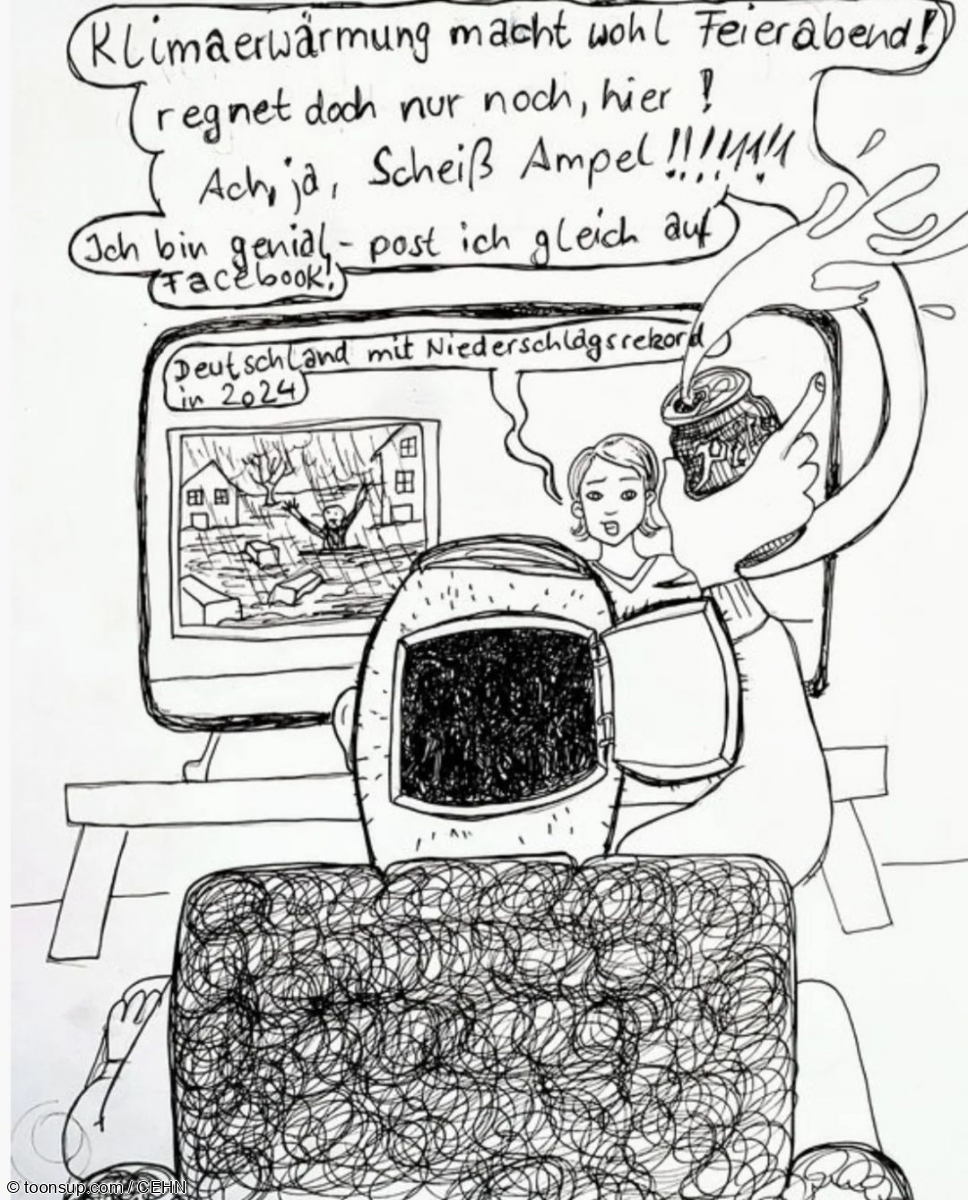 Klimaerwärmung macht wohl Feierabend!
regnet doch nur noch, hier !
Ach, ja, Scheiß Ampel!!!!!!!!
Ich bin genial,- post ich gleich auf
Facebook!
Deutschland mit Niederschlagsrekord
in 2024
© toonsup.com / CEHN